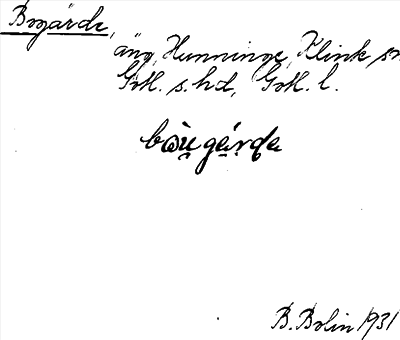 Bogärde,
äng, Hunninge, Klinte sn
Gotl. s. hd, Gotl. l.
bòu̯gá̤rda
B. Bolin 1931